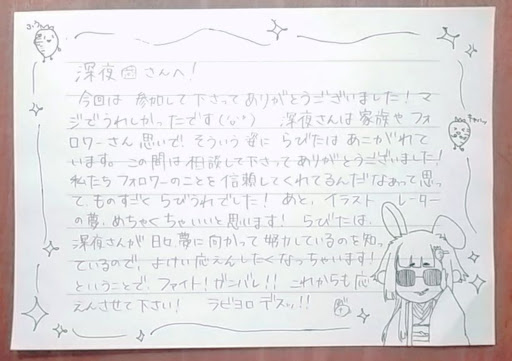 深夜団さんへ!
今回は 参加して下さってありがとうございました!マ
ジでうれしかったです(°o°) 深夜さんは家族やフォ
ロワーさん思いで!そういう姿に らびたはあこがれて
います。この間は相談して下さってありがとうございました!
私たちフォロワーのことを信頼してくれてるんだなぁって思っ
て、ものすごくらびうれでした!あと、イラストレーター
の夢、めちゃくちゃいいと思います! らびたは、
深夜さんが日々夢に向かって努力しているのを知っ
ているので、よけい応えんしたくなっちゃいます!
ということで、ファイト!ガンバレ!! これからも応
えんさせて下さい! ラビヨロデスッ!!